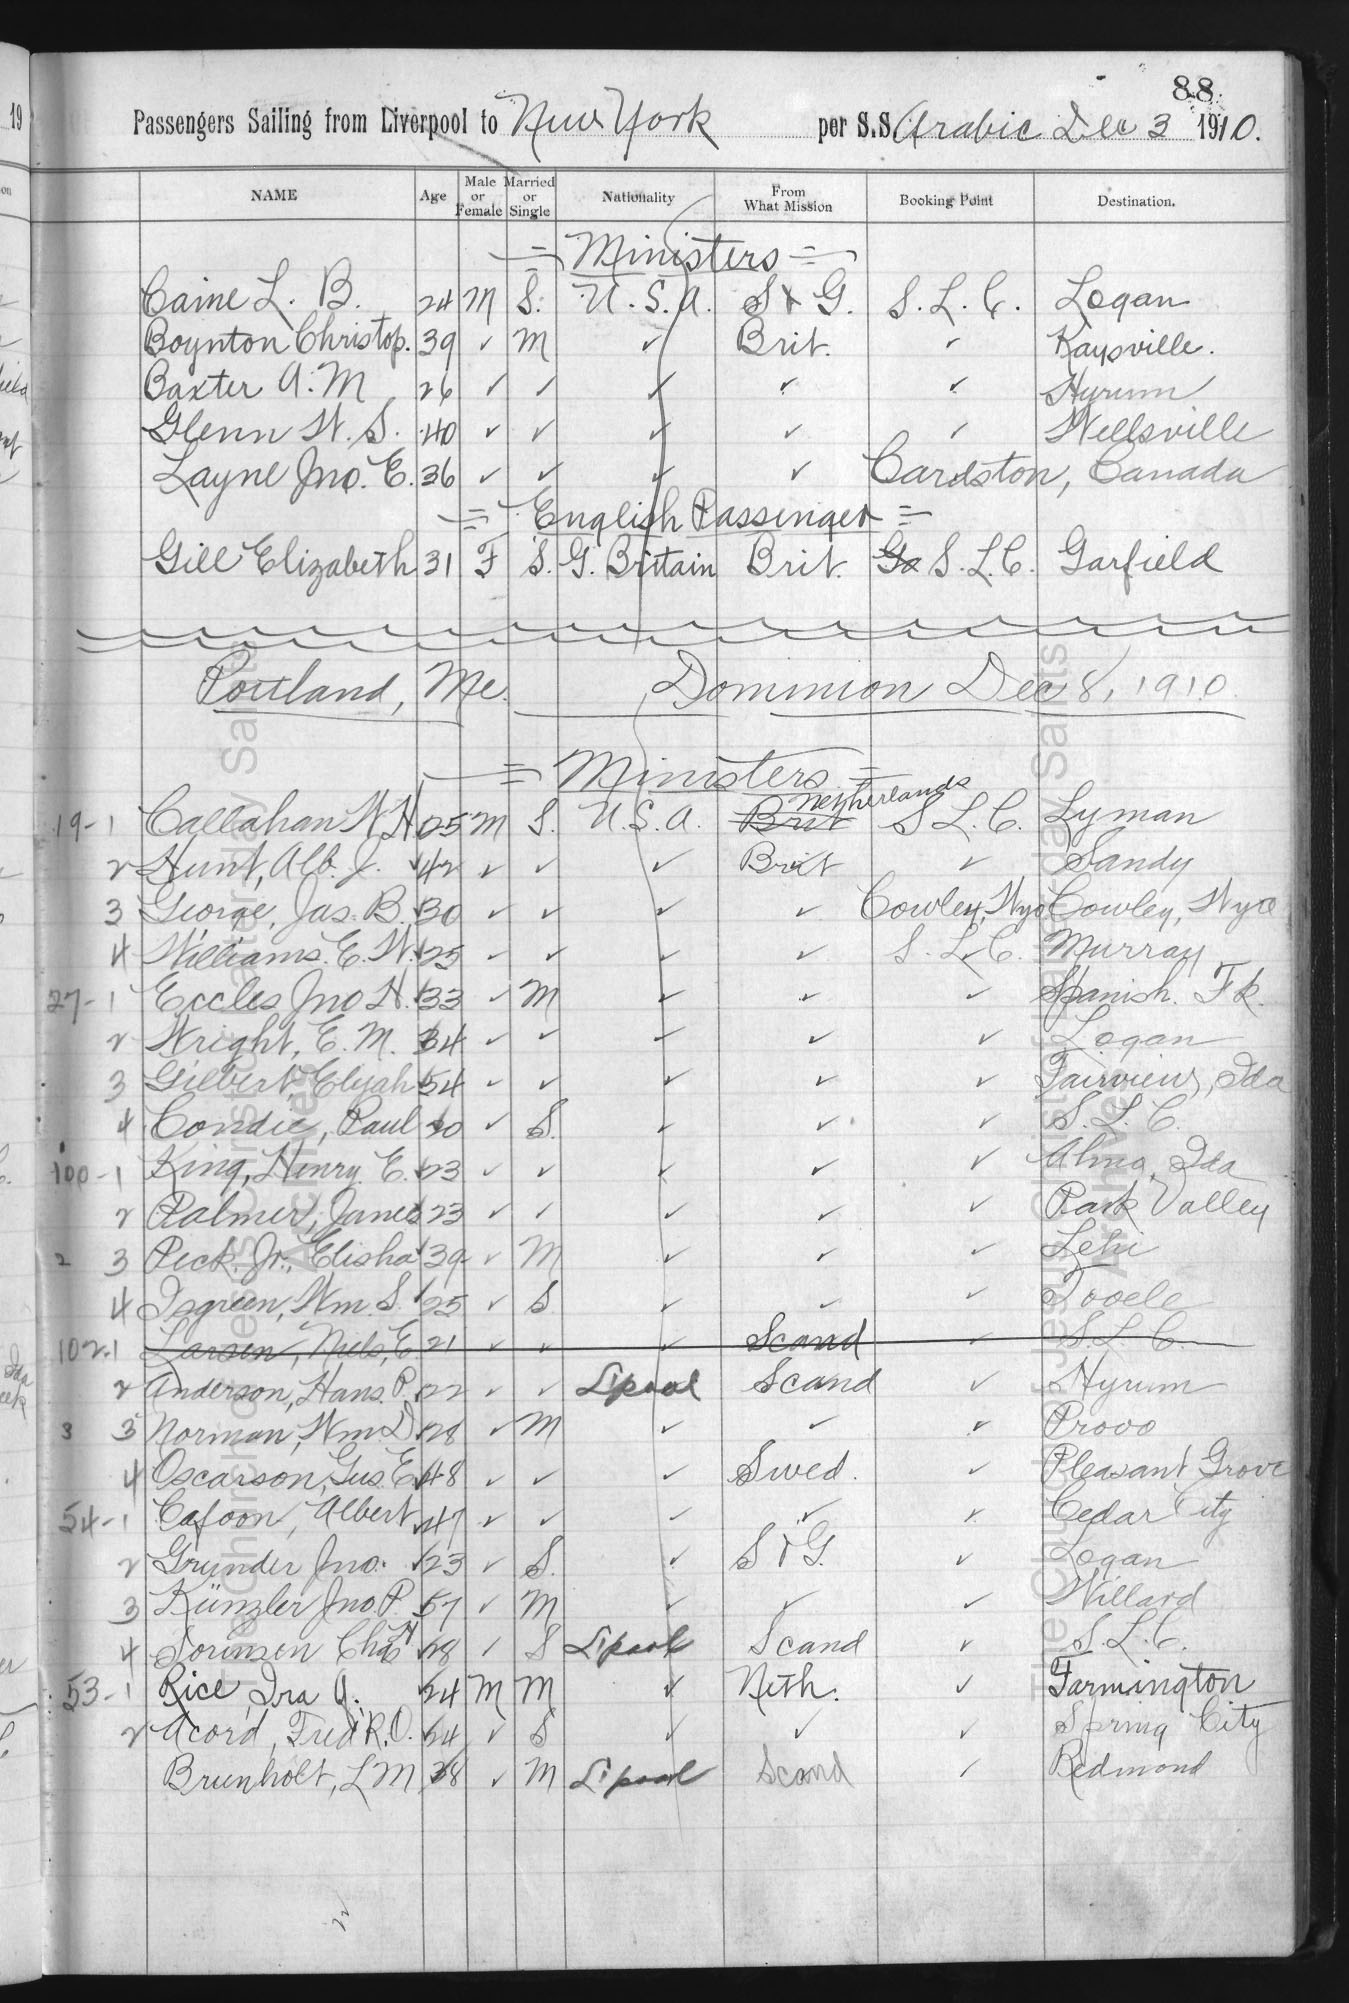 88
Passengers Sailing from Liverpool to New York per S.S. Arabic Dec 3 1910.
NAME Age Male or Female Married or Single Nationality From What Mission Booking Point Destination.
= Ministers =
Caine L. B. 24 M S. U.S.A. S & G. S.L.C. Logan
Boynton Christop. 39 ✓ M ✓ Brit. ✓ Kaysville.
Baxter A. M 26 ✓ ✓ ✓ ✓ ✓ Hyrum
Glenn W. S. 40 ✓ ✓ ✓ ✓ ✓ Wellsville
Layne Jno. E. 36 ✓ ✓ ✓ ✓ Cardston, Canada
= English Passenger =
Gill Elizabeth 31 F S. G. Britain Brit. Ga S.L.C. Garfield
Portland, Me. Dominion Dec 8, 1910.
= Ministers =
19-1 Callahan W. H. 25 M S. U.S.A. Brit Netherlands S.L.C. Lyman
2 Hunt, Alb. J. 42 ✓ ✓ ✓ Brit ✓ Sandy
3 George, Jas. B. 30 ✓ ✓ ✓ ✓ Cowley, Wyo Cowley, Wyo
4 Williams. E. W. 25 ✓ ✓ ✓ ✓ S.L.C. Murray
27-1 Eccles Jno H. 33 ✓ M ✓ ✓ ✓ Spanish. Fk.
2 Wright, E. M. 34 ✓ ✓ ✓ ✓ ✓ Logan
3 Gilbert, Elijah 54 ✓ ✓ ✓ ✓ ✓ Fairview, Ida
4 Condie, Paul 20 ✓ S. ✓ ✓ ✓ S.L.C.
100-1 King, Henry E. 23 ✓ ✓ ✓ ✓ ✓ Almo, Ida
2 Palmer, James 23 ✓ ✓ ✓ ✓ ✓ Park Valley
2 3 Peck. Jr., Elisha 39 ✓ M ✓ ✓ ✓ Lehi
4 Isgreen, Wm. S. 25 ✓ S ✓ ✓ ✓ Tooele
102-1 Larsen, Niels, E 21 ✓ ✓ ✓ Scand ✓ S.L.C.
2 Anderson, Hans. P. 22 ✓ ✓ L'pool Scand ✓ Hyrum
3 3 Norman, Wm. D. 28 ✓ M ✓ ✓ ✓ Provo
4 Oscarson, Gus. E. 48 ✓ ✓ ✓ Swed. ✓ Pleasant Grove
54-1 Cafoon, Albert 47 ✓ ✓ ✓ ✓ ✓ Cedar City
2 Grunder Jno. 23 ✓ S. ✓ S & G. ✓ Logan
3 Künzler Jno. P. 57 ✓ M ✓ ✓ ✓ Willard
4 Sorensen Chas H 28 ✓ S L'pool Scand ✓ S.L.C.
53-1 Rice Ira A. 24 M M ✓ Neth. ✓ Farmington
2 Acord, Fred R. O. 24 ✓ S ✓ ✓ ✓ Spring City
Brunholt, L M 28 ✓ M L'pool Scand ✓ Redmond